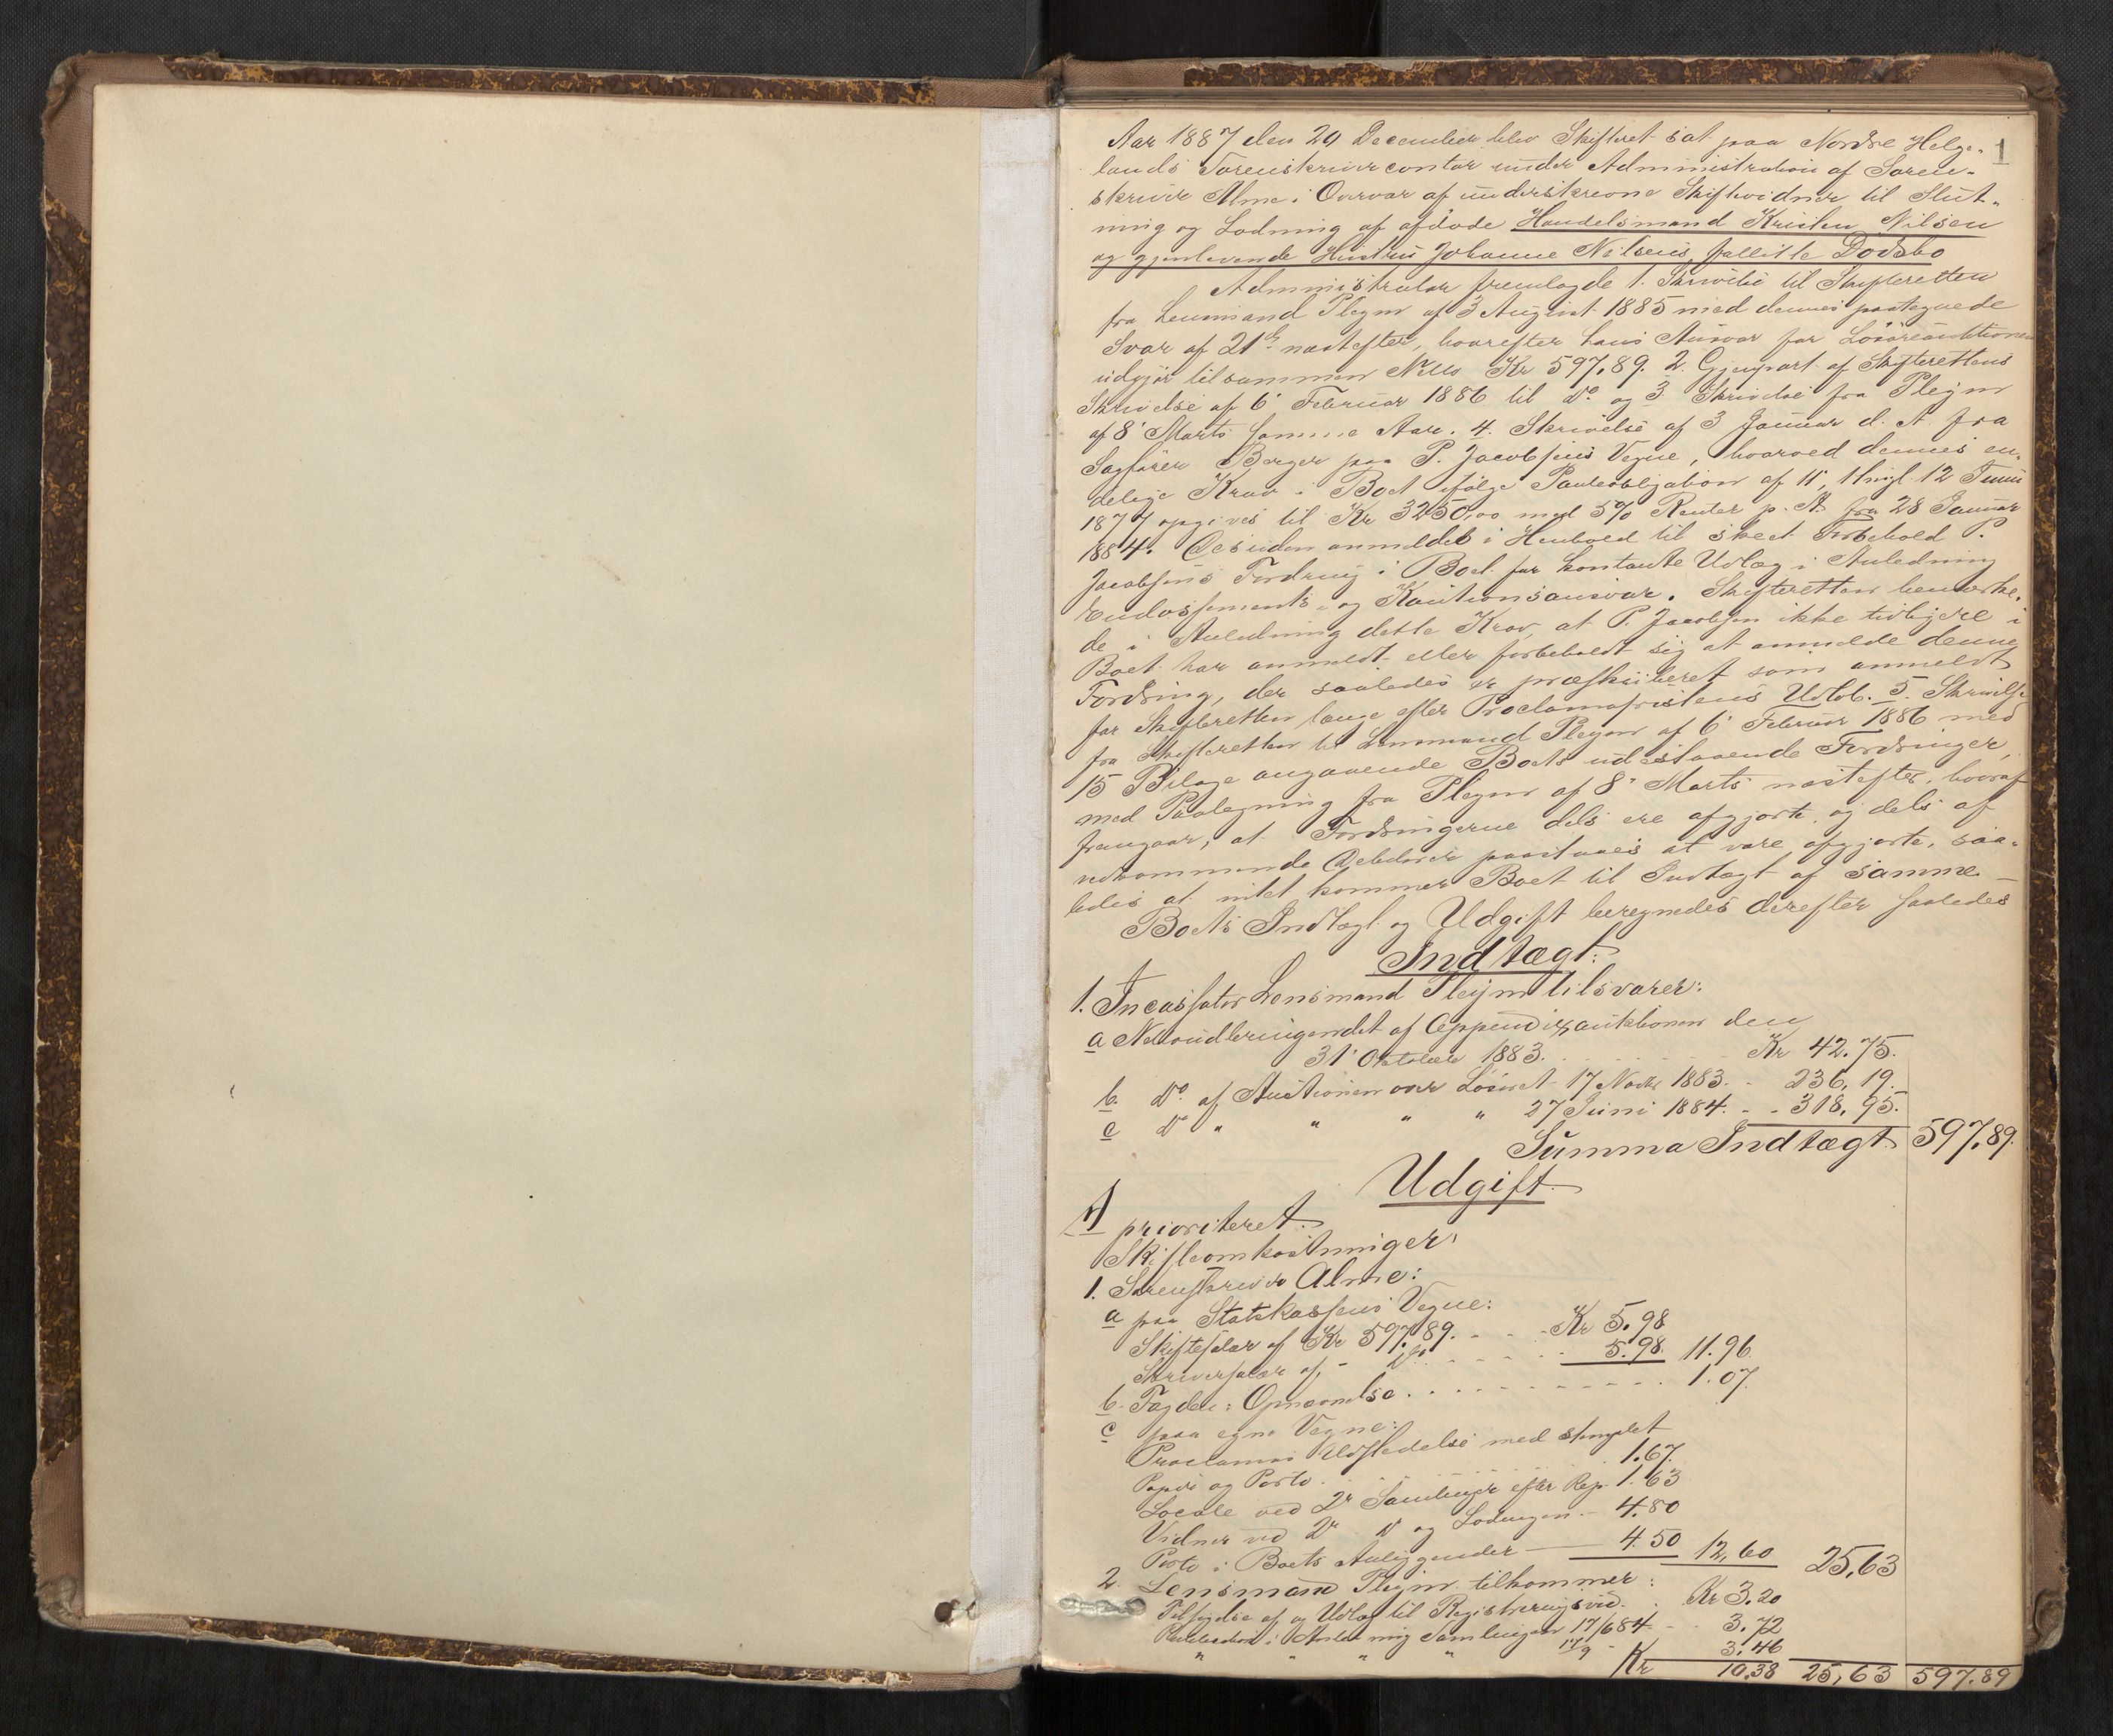 1
Aar 1887 den 29 December blev Skifteret sat paa Nordre Helge-
lands Sorenskrivercontor under Administration af Soren-
skriver Alme i Overvær af underskrevne Skiftevidner til Slut-
ning og Lodning af afdøde Handelsmand Kristen Nilsen
og gjenlevende Hustru Johanne Nilsens fallitte Dødsbo
Administrator fremlagde 1. Skrivelse til Skifteretten
fra Lensmand Pleym af 3 August 1885 med dennes paategnede
Svar af 21de næstefter, hvorefter hans Ansvar for Løsøreauktionen
udgjør tilsammen Netto Kr 597,89. 2. Gjenpart af Skifterettens
Skrivelse af 6' Februar 1886 til Do og 3. Skrivelse fra Pleym
af 8' Marts samme Aar. 4. Skrivelse af 3 Januar d. A. fra
Sagfører Berger paa P. Jacobsens Vegne, hvorved dennes en-
delige Krav i Boet ifølge Panteobligation af 11', tingl. 12 Juni
1877 opgives til Kr 3250,00 med 5% Renter p. A. fra 28 Januar
1884. Desuden anmeldes i Henhold til skeet Forbehold P.
Jacobsens Fordring i Boet for kontante Udlæg i Anledning
Endossements- og Kautionsansvar. Skifteretten bemærke-
de i Anledning dette Krav, at P. Jacobsen ikke tidligere i
Boet har anmeldt eller forbeholdt sig at anmelde denne
Fordring, der saaledes er præskriberet som anmeldt
for Skifteretten længe efter Proclamafristens Udløb. 5. Skrivelse
fra Skifteretten til Lensmand Pleym af 6' Februar 1886 med
15 Bilage angaaende Boets udestaaende Fordringer,
med Paategning fra Pleym af 8' Marts næstefter, hvoraf
fremgaar, at Fordringerne dels ere afgjorte og dels af
vedkommende Debitorer paastaaes at være afgjorte, saa-
ledes at intet kommer Boet til Indtægt af samme –
Boets Indtægt og Udgift beregnedes derefter saaledes
Indtægt:
1. Incassator Lensmand Pleym tilsvarer:
a Nettoudbringendet af Appendixauktionen den
31' Oktober 1883. Kr 42.75.
b. Do. af Auctionen over Løsøret 17 Novbr 1883. - 236,19.
c Do " " " " 27 Juni 1884. - 318,95.
Summa Indtægt 597,89.
Udgift.
A prioriteret.
Skifteomkostninger:
1. Sorenskriver Alme:
a paa Statskassens Vegne:
Skiftesalær af Kr 597,89. Kr 5.98
Skriversalær af - Do 5.98. 11.96
b. Fogden: Opnævnelse 1.07.
c paa egne Vegne:
Proclamas Udstedelse med stemplet
Papir og Porto 1.67.
Locale ved 2de Samlinger efter Rep. 1.63
Vidner ved 2de Do og Lodningen 4.80
Porto i Boets Anliggender 4.50 12,60 25,63
2. Lensmand Pleym tilkommer:
Tilsigelse af og Udlæg til Registreringsvid. Kr 3.20
17/6 84 - 3.72
" " " " 17/9 - 3.46
Kr 10.38 25,63 597.89